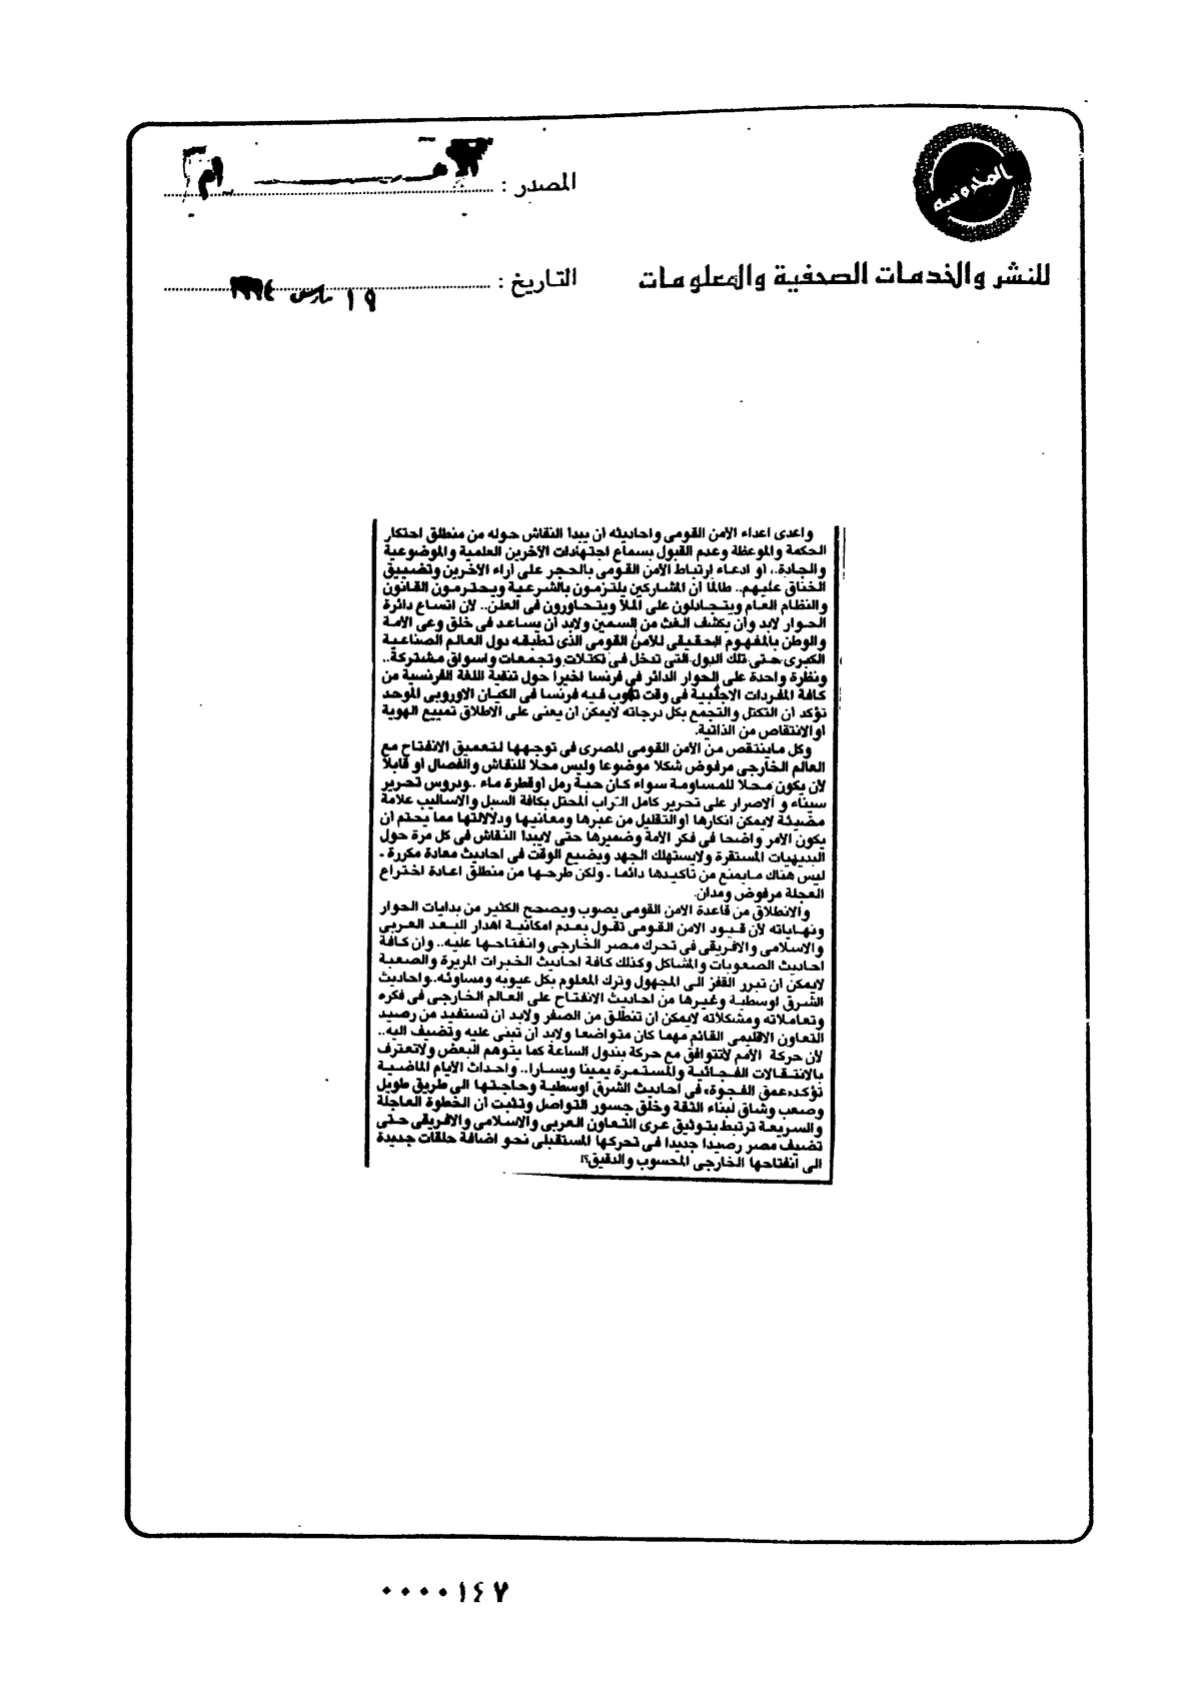 المحروسه
المصدر :
للنشر والخدمات الصحفية والمعلومات
التاريخ : ١٩ مارس ١٩٩٤
واعدى اعداء الأمن القومى واحاديثه ان يبدا النقاش حوله من منطلق احتكار
الحكمة والموعظة وعدم القبول بسماع اجتهادات الآخرين العلمية والموضوعية
والجادة.. او ادعاء ارتباط الأمن القومى بالحجر على آراء الآخرين وتضييق
الخناق عليهم.. طالما أن المشاركين يلتزمون بالشرعية ويحترمون القانون
والنظام العام ويتجادلون على الملأ ويتحاورون فى العلن.. لأن اتساع دائرة
الحوار لابد وأن يكشف الغث من السمين ولابد أن يساعد فى خلق وعى الأمة
والوطن بالمفهوم الحقيقى للأمن القومى الذى تطبقه دول العالم الصناعية
الكبرى حتى تلك الدول التى تدخل فى تكتلات وتجمعات واسواق مشتركة..
ونظرة واحدة على الحوار الدائر فى فرنسا اخيرا حول تنقية اللغة الفرنسية من
كافة المفردات الاجنبية فى وقت تذوب فيه فرنسا فى الكيان الاوروبى الموحد
تؤكد أن التكتل والتجمع بكل درجاته لايمكن أن يعنى على الاطلاق تمييع الهوية
او الانتقاص من الذاتية.
وكل ماينتقص من الأمن القومى المصرى فى توجهها لتعميق الانفتاح مع
العالم الخارجى مرفوض شكلا موضوعا وليس محلا للنقاش والفصال او قابلا
لأن يكون محلا للمساومة سواء كان حبة رمل أو قطرة ماء ..ودروس تحرير
سيناء و الاصرار على تحرير كامل التراب المحتل بكافة السبل والاساليب علامة
مضيئة لايمكن انكارها او التقليل من عبرها ومعانيها ودلالالتها مما يحتم ان
يكون الأمر واضحا فى فكر الأمة وضميرها حتى لايبدا النقاش فى كل مرة حول
البديهيات المستقرة ولايستهلك الجهد ويضيع الوقت فى احاديث معادة مكررة ـ
ليس هناك مايمنع من تاكيدها دائما ـ ولكن طرحها من منطلق اعادة اختراع
العجلة مرفوض ومدان.
والانطلاق من قاعدة الأمن القومى يصوب ويصحح الكثير من بدايات الحوار
ونهاياته لأن قيود الامن القومى تقول بعدم امكانية اهدار البعد العربى
والاسلامى والافريقى فى تحرك مصر الخارجى وانفتاحها عليه.. وأن كافة
احاديث الصعوبات والمشاكل وكذلك كافة احاديث الخبرات المريرة والصعبة
لايمكن ان تبرر القفز الى المجهول وترك المعلوم بكل عيوبه ومساوئه..واحاديث
الشرق اوسطية وغيرها من احاديث الانفتاح على العالم الخارجى فى فكره
وتعاملاته ومشكلاته لايمكن ان تنطلق من الصفر ولابد ان تستفيد من رصيد
التعاون الاقليمى القائم مهما كان متواضعا ولابد أن تبنى عليه وتضيف اليه..
لأن حركة الأمم لاتتوافق مع حركة بندول الساعة كما يتوهم البعض ولاتعترف
بالانتقالات الفجائية والمستمرة يمينا ويسارا.. واحداث الأيام الماضية
تؤكد«عمق الفجوة» فى احاديث الشرق اوسطية وحاجتها الى طريق طويل
وصعب وشاق لبناء الثقة وخلق جسور التواصل وتثبت أن الخطوة العاجلة
والسريعة ترتبط بتوثيق عرى التعاون العربى والاسلامى والافريقى حتى
تضيف مصر رصيدا جديدا فى تحركها المستقبلى نحو اضافة حلقات جديدة
الى انفتاحها الخارجى المحسوب والدقيق؟!
٠٠٠٠١٤٧